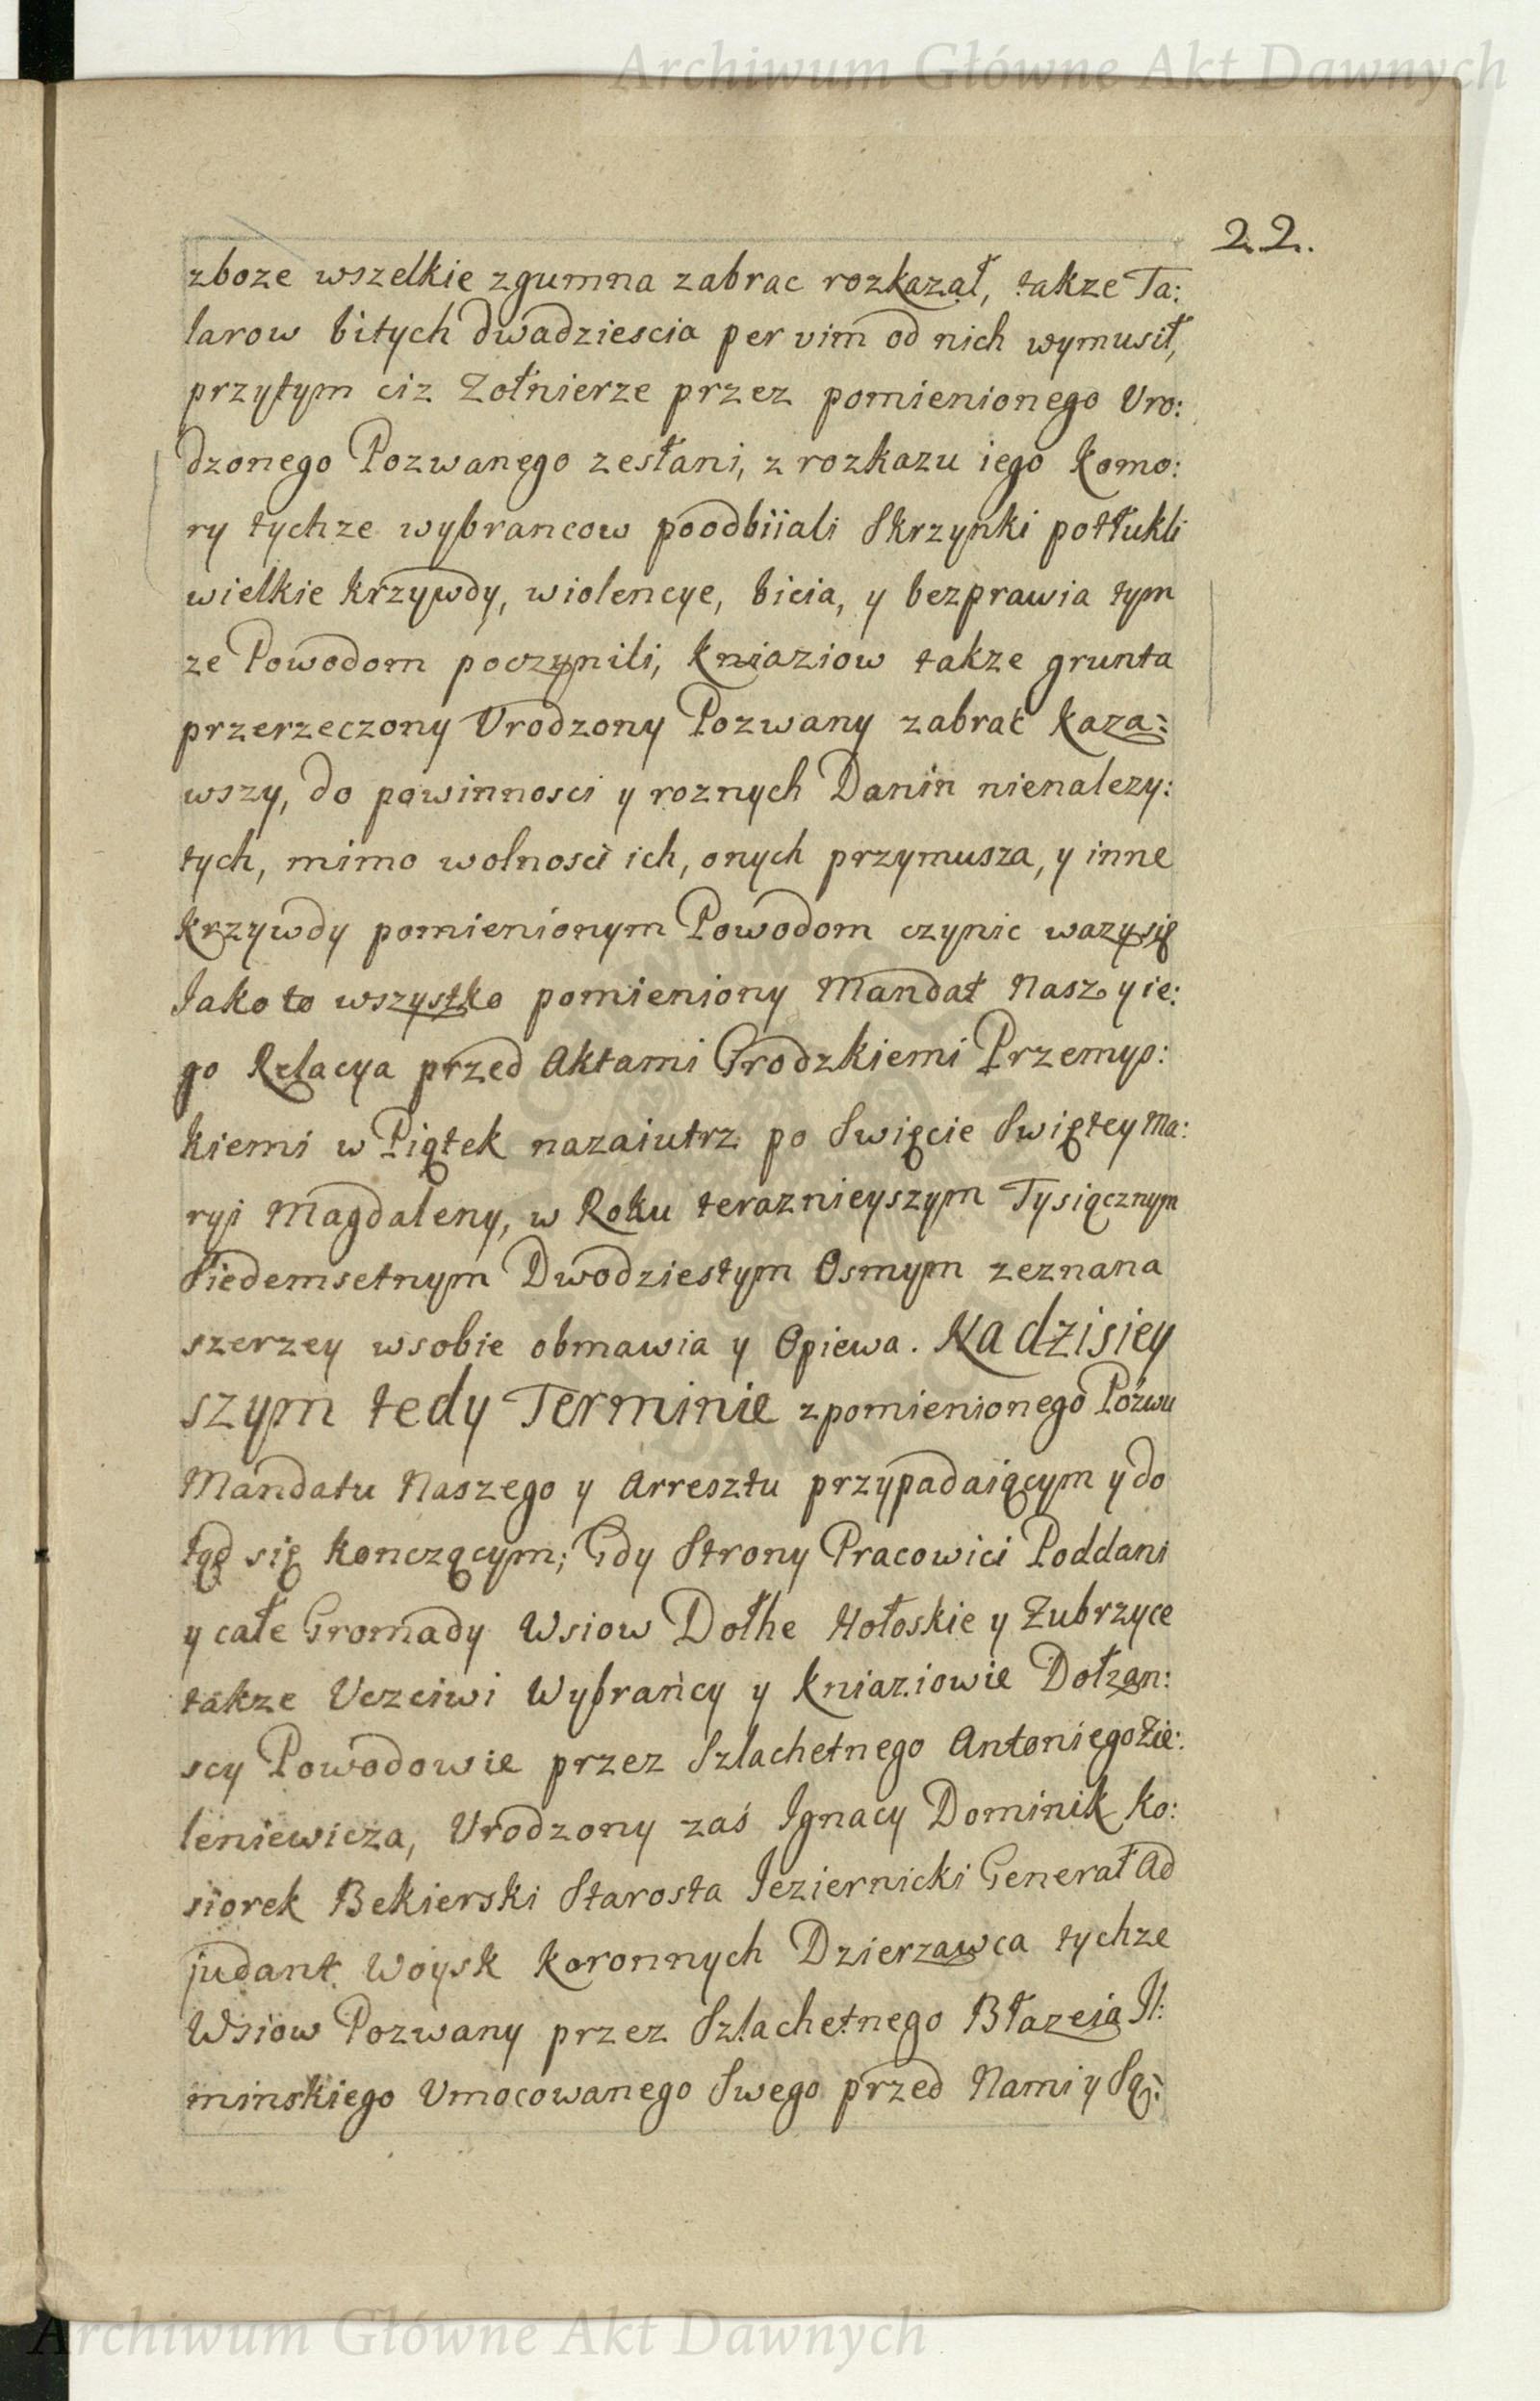 Archiwum Główne Akt Dawnych
22.
zboze wszelkie zgumna zabrac rozkazał, takze Ta:
larow bitych dwadziescia per vim od nich wymusił,
przytym ciz Zołnierze przez pomienionego Vro:
dzonego Pozwanego zesłani, z rozkazu iego Komo:
ry tychze wybrancow poodbiiali Skrzynki potłukli
wielkie krzywdy, wiolencye, bicia, y bezprawia tym
ze Powodom poczynili, Kniaziow takze grunta
przerzeczony Vrodzony Pozwany zabrać kaza:
wszy, do powinnosci y roznych Danin nienalezy:
tych, mimo wolnosci ich, onych przymusza, y inne
krzywdy pomienionym Powodom czynic wazysię
Jako to wszystko pomieniony Mandat Nasz y ie:
go Relacya przed Aktami Grodzkiemi Przemys:
kiemi w Piątek nazaiutrz po Swięcie Swiętey Ma:
ryi Magdaleny, w Roku teraznieyszym Tysiącznym
Siedemsetnym Dwodziestym Osmym zeznana
szerzey wsobie obmawia y Opiewa. Na dzisiey
szym tedy Terminie zpomienionego Pozwu
Mandatu Naszego y Arresztu przypadaiącym y do
tąd się konczącym; Gdy Strony Pracowici Poddani
y całe Gromady Wsiow Dołhe Hołoskie y Zubrzyce
takze Vczciwi Wybrańcy y Kniaziowie Dołzan:
scy Powodowie przez Szlachetnego Antoniego Zie:
leniewicza, Vrodzony zaś Ignacy Dominik Ko:
siorek Bekierski Starosta Jeziernicki Generał Ad
judant Woysk Koronnych Dzierzawca tychze
Wsiow Pozwany przez Szlachetnego Błazeia Jl:
minskiego Vmocowanego Swego przed Nami y Są:
Archiwum Główne Akt Dawnych